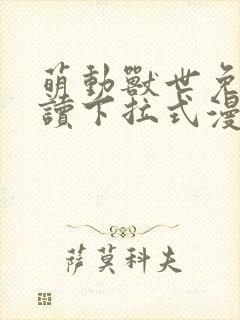 萌動獸世免
讀下拉式漫
萨莫科夫